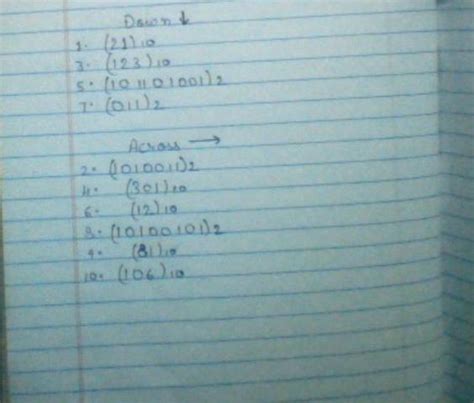 Down ↓
1. (21)10
3. (123)10
5. (101101001)2
7. (011)2
Across →
2. (1010011)2
4. (301)10
6. (12)10
8. (10100101)2
9. (81)10
10. (106)10